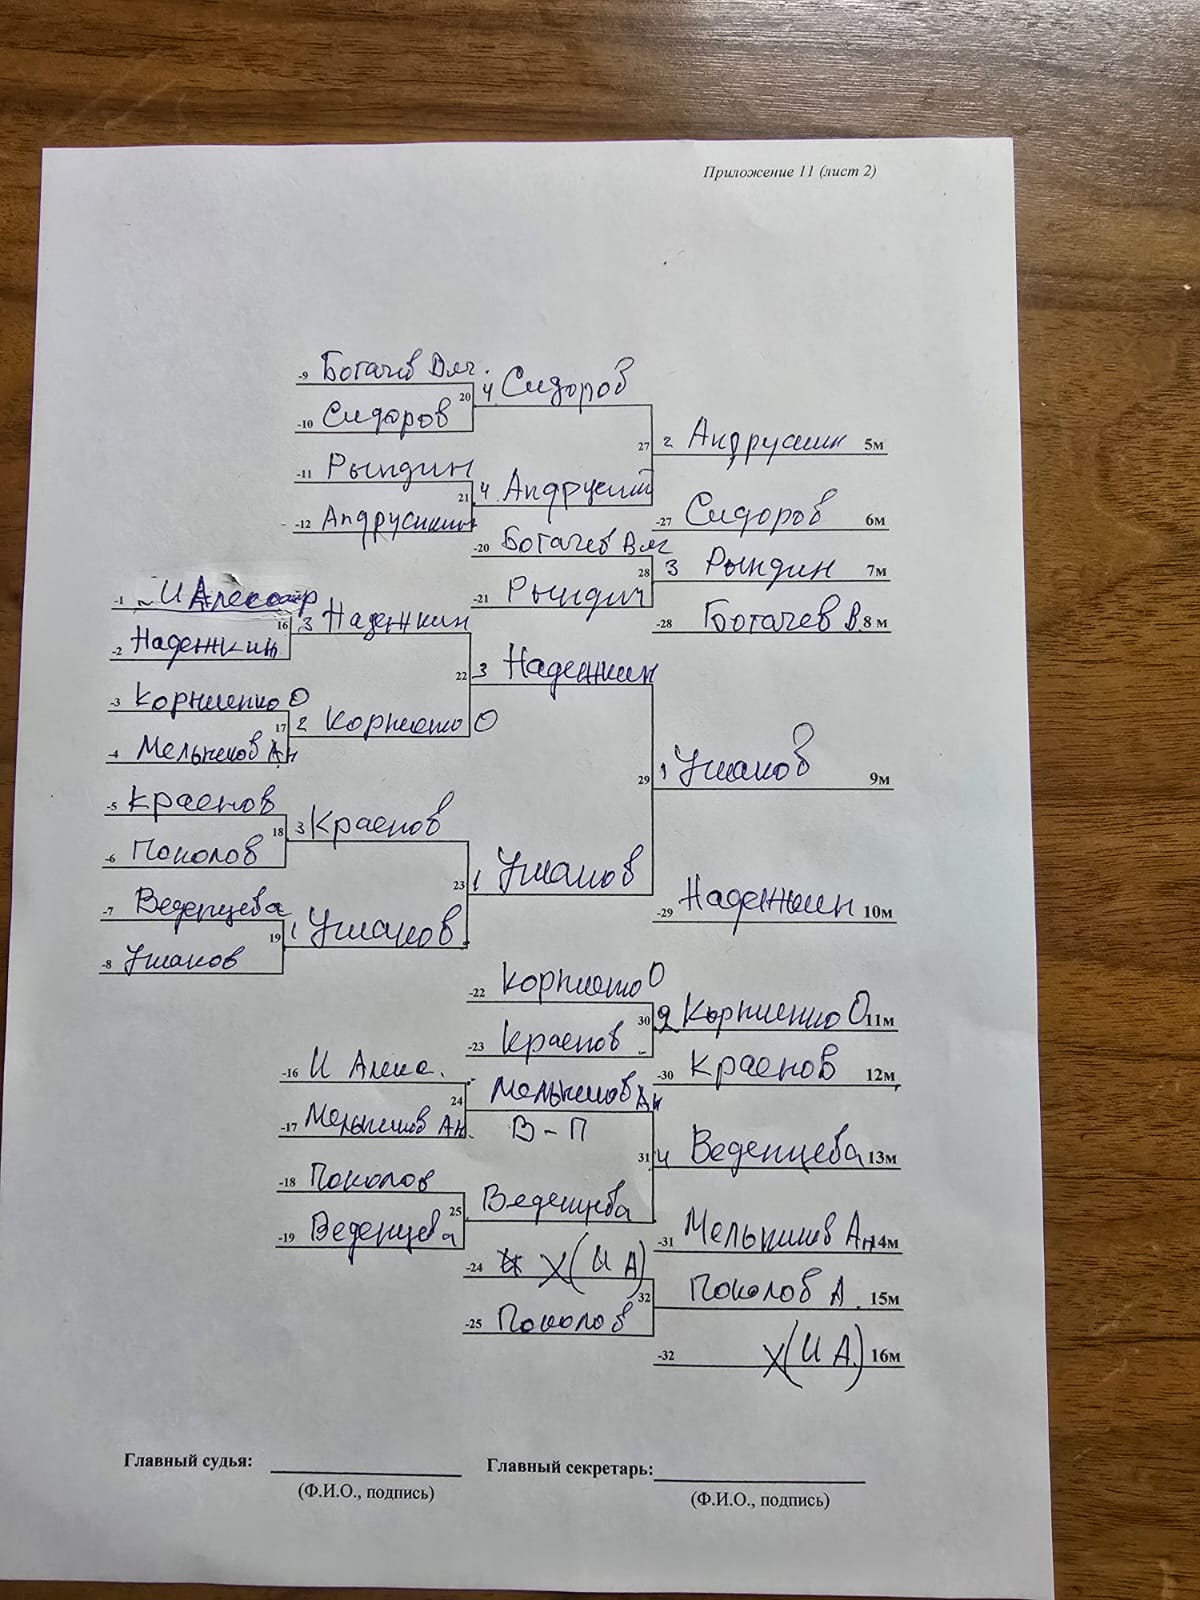 Приложение 11 (лист 2)
-9 Богачев Вяч.
20 4 Сидоров
-10 Сидоров
27 2 Андрусишин 5м
-11 Рындин
21 4 Андрусиш
-12 Андрусишин
-27 Сидоров 6м
-20 Богачев Вяч
28 3 Рындин 7м
-21 Рындин
-28 Богачев В. 8 м
-1 И Александр
16 3 Надежкин
-2 Надежкин
22 3 Надежкин
-3 Корниенко О
17 2 Корниенко О
-4 Мельников Ан
29 1 Ушаков 9м
-5 Краснов
18 3 Краснов
-6 Поколов
23 1 Ушаков
-7 Веденцева
19 1 Ушаков
-8 Ушаков
-29 Надежкин 10м
-22 Корниенко О
30 2 Корниенко О 11м
-23 Краснов
-30 Краснов 12м
-16 И Алекс.
24 Мельников Ан
-17 Мельников Ан.
В-П
31 4 Веденцева 13м
-18 Поколов
25 Веденцева
-19 Веденцева
-31 Мельников Ан 14м
-24 Х (И А)
32 Поколов А. 15м
-25 Поколов
-32 Х (И А.) 16м
Главный судья: Главный секретарь:
(Ф.И.О., подпись) (Ф.И.О., подпись)